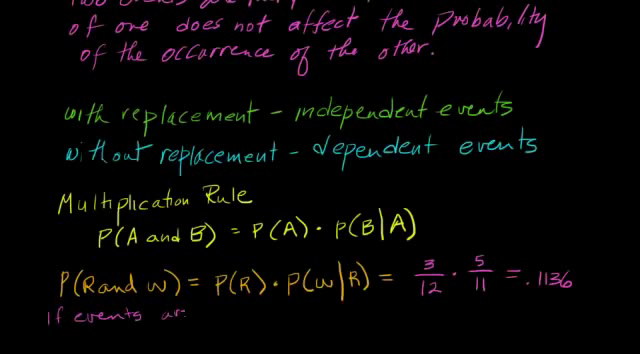 of one does not affect the probability
of the occurrence of the other.
with replacement - independent events
without replacement - dependent events
Multiplication Rule
P(A and B) = P(A) · P(B|A)
P(R and W) = P(R) · P(W|R) = 3/12 · 5/11 = .1136
If events ar